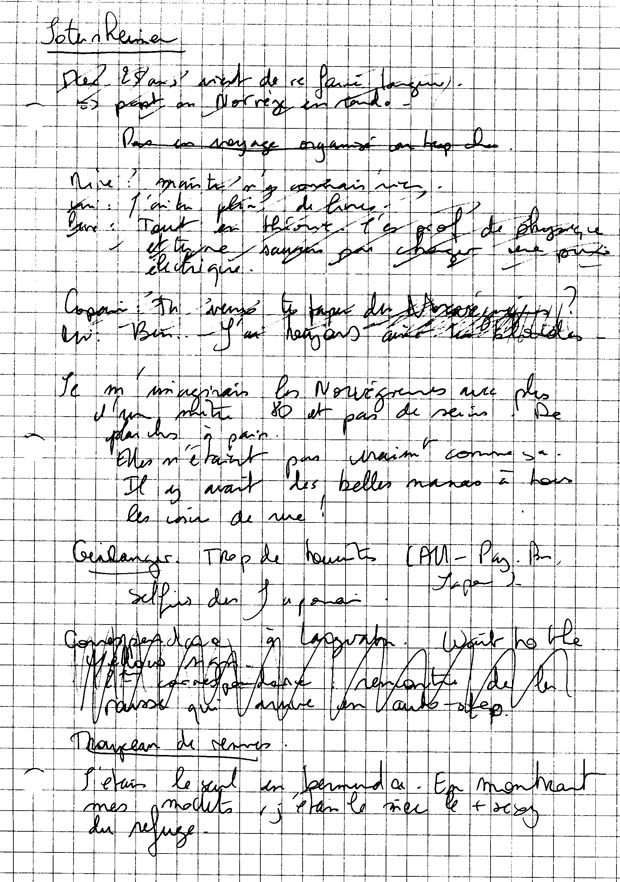 Jotunheimen
25 ans vient de se faire larguer.
=> part en Norvège en rando -
Pas un voyage organisé car trop cher
Mère : n'y connais rien.
J'ai lu plein de livres.
Tout en théorie. T'es prof de physique
et tu ne sais pas changer une prise
électrique.
Copain : Tu vas te taper des Norvégiennes ?
Ben... J'ai toujours aimé les blondes -
Je m'imaginais les Norvégiennes avec plus
d'un mètre 80 et pas de seins ! De
planches à pain.
Elles n'étaient pas vraimt comme ça.
Il y avait des belles nanas à tous
les coins de rue !
Geiranger. Trop de touristes (All - Pay. Bas
Japon) -
selfies des Japonais.
Correspondance à Langvatn. Wait to the
yellow sign -
correspondance : rencontre de la
russe qui arrive en auto-stop.
Troupeau de rennes.
J'étais le seul en bermuda. En montrant
mes mollets, j'étais le mec le + sexy
du refuge -